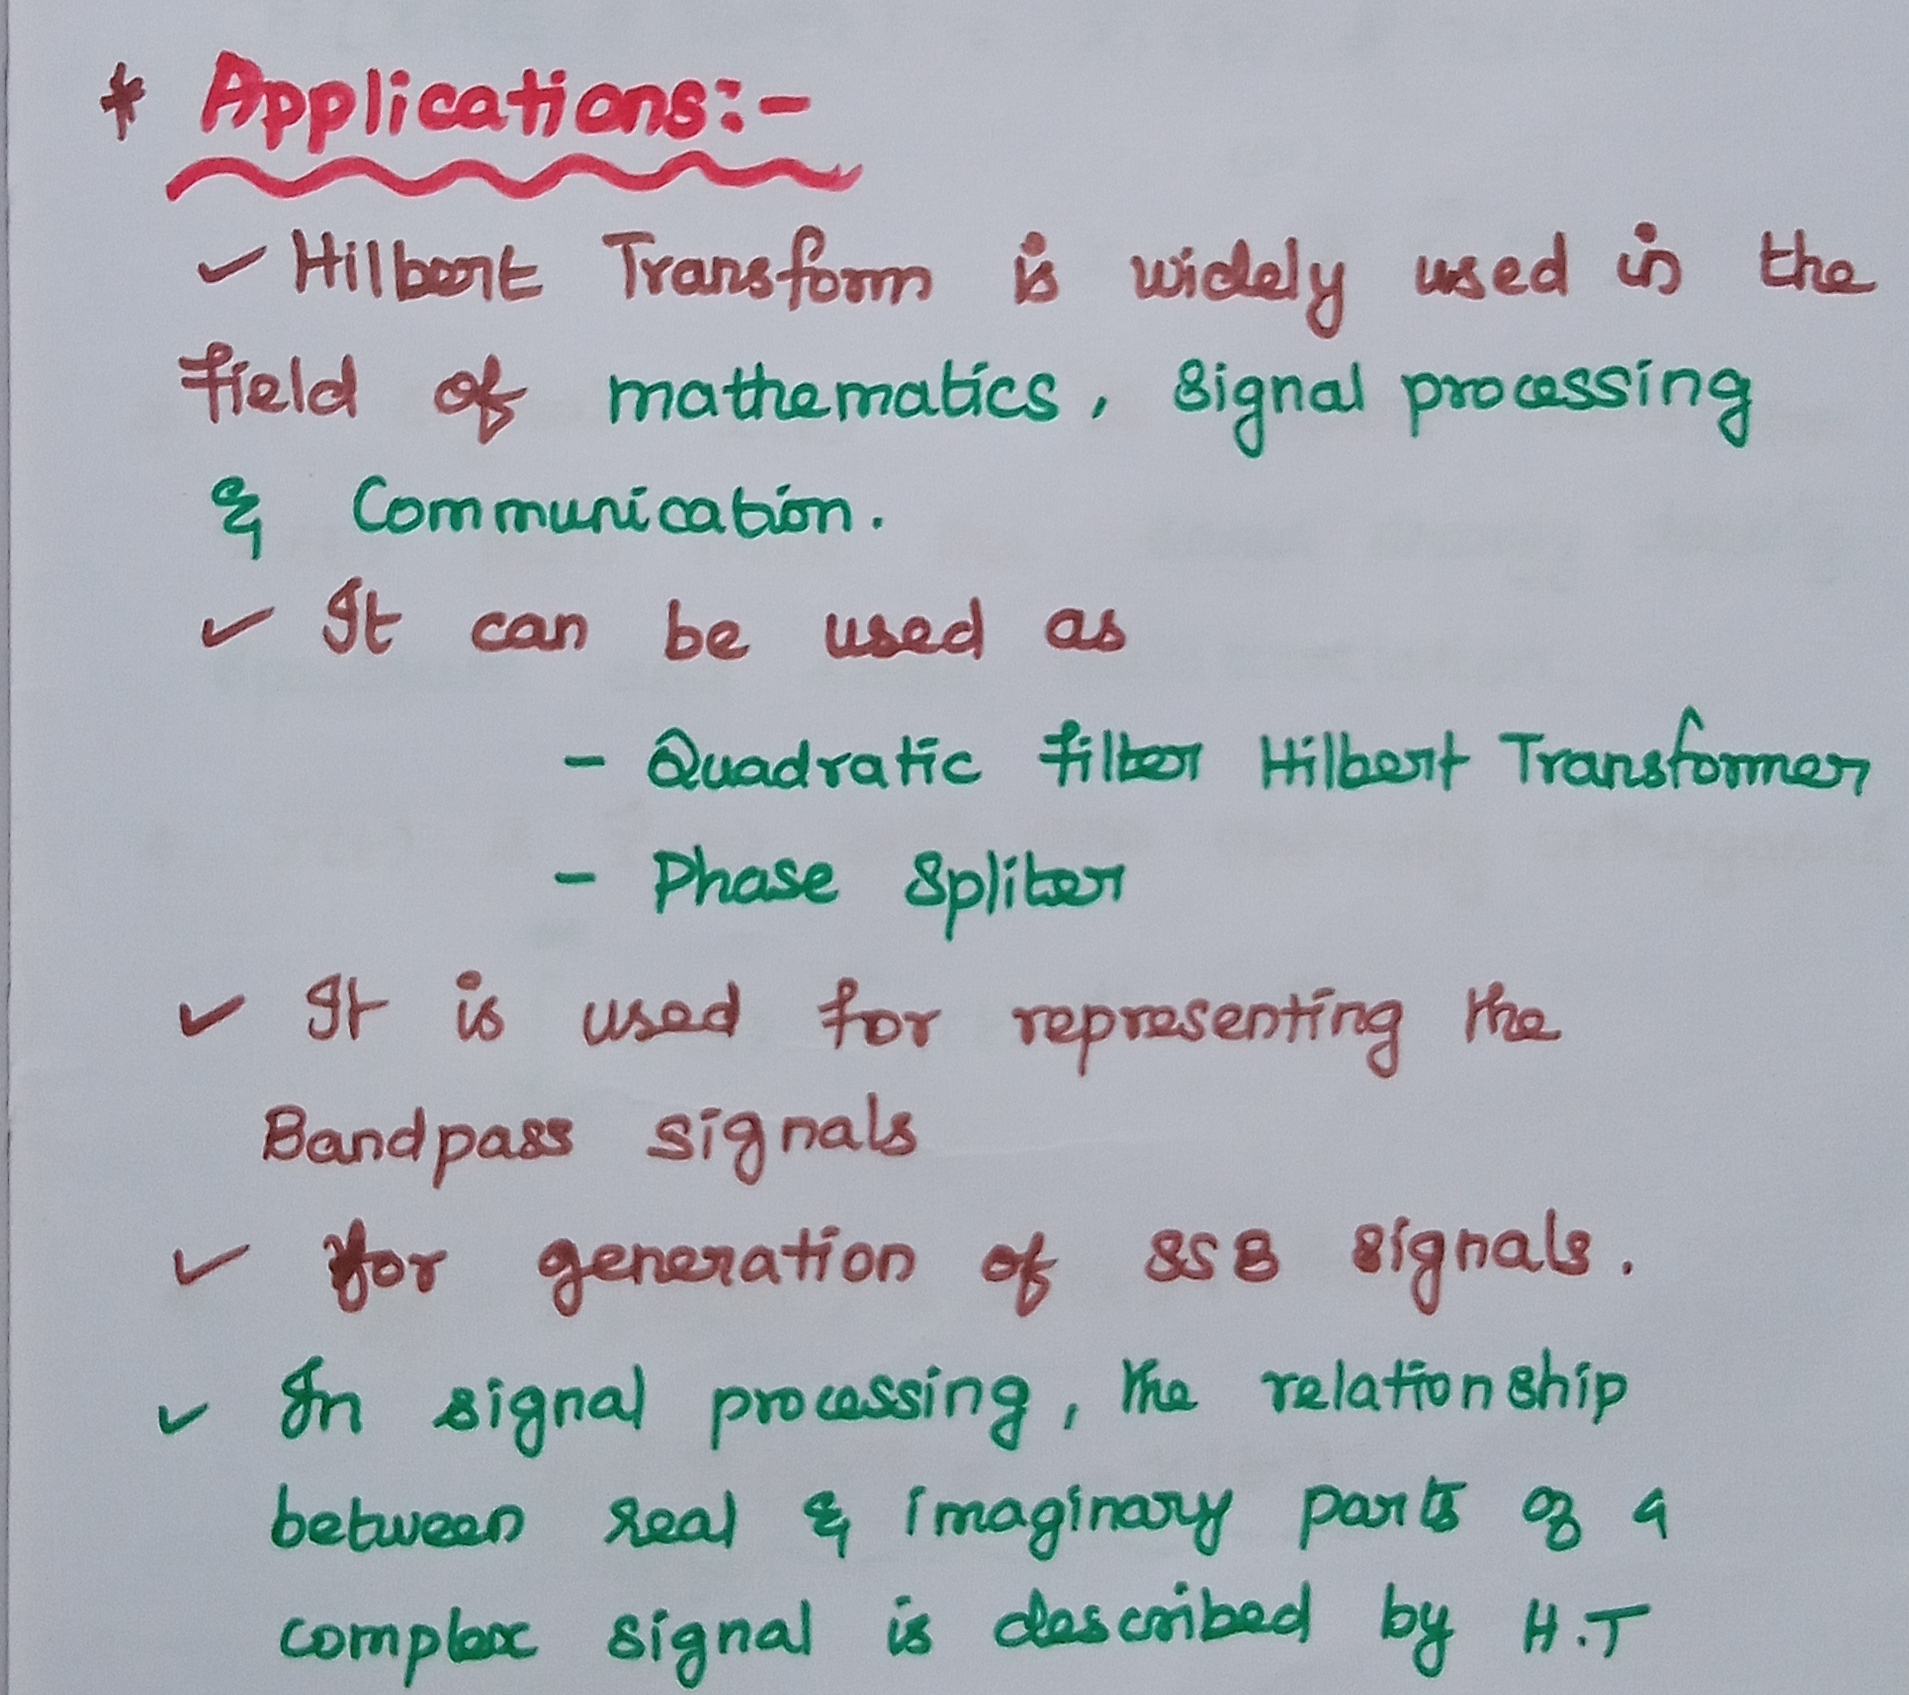 * Applications:-
✓ Hilbert Transform is widely used in the
field of mathematics, signal processing
& Communication.
✓ It can be used as
- Quadratic filter Hilbert Transformer
- Phase Spliter
✓ It is used for representing the
Bandpass signals
✓ for generation of SSB signals.
✓ In signal processing, the relationship
between real & imaginary parts of a
complex signal is described by H.T